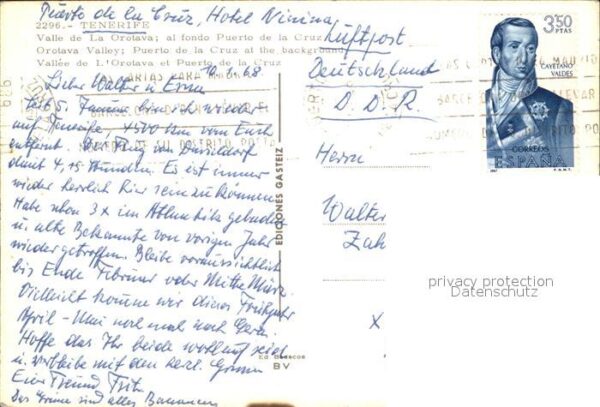 Puerto de la Cruz, Hotel Nivina,
2296.- TENERIFE
Valle de La Orotava; al fondo Puerto de la Cruz
Orotava Valley; Puerto de la Cruz at the background
Vallée de L'Orotava et Puerto de la Cruz
10.1.68
Lieber Walter u. Erna
seit 5. Januar bin ich wieder
auf Tenerife, 4500 Km von Euch
entfernt. Der Flug von Düsseldorf
dauert 4,15 Stunden. Es ist immer
wieder herrlich hier sein zu können
Habe schon 3 x im Atlantik gebadet
u. alte Bekannte von vorigem Jahr
wiedergetroffen. Bleibe voraussichtlich
bis Ende Februar oder Mitte März.
Vielleicht komme wir dieses Frühjahr
April - Mai noch mal nach Gera.
Hoffe das Ihr beide wohlauf seid
u. verbleibe mit den herzl. Grüssen
Euer Freund Fritz
Das Grüne sind alles Bananen
EDICIONES GASTEIZ
BV
Luftpost
Deutschland
D.D.R.
Herrn
Walter
Zah
x
3,50
PTAS
CAYETANO
VALDES
CORREOS
ESPAÑA
1967
F.N.M.T.
privacy protection
Datenschutz